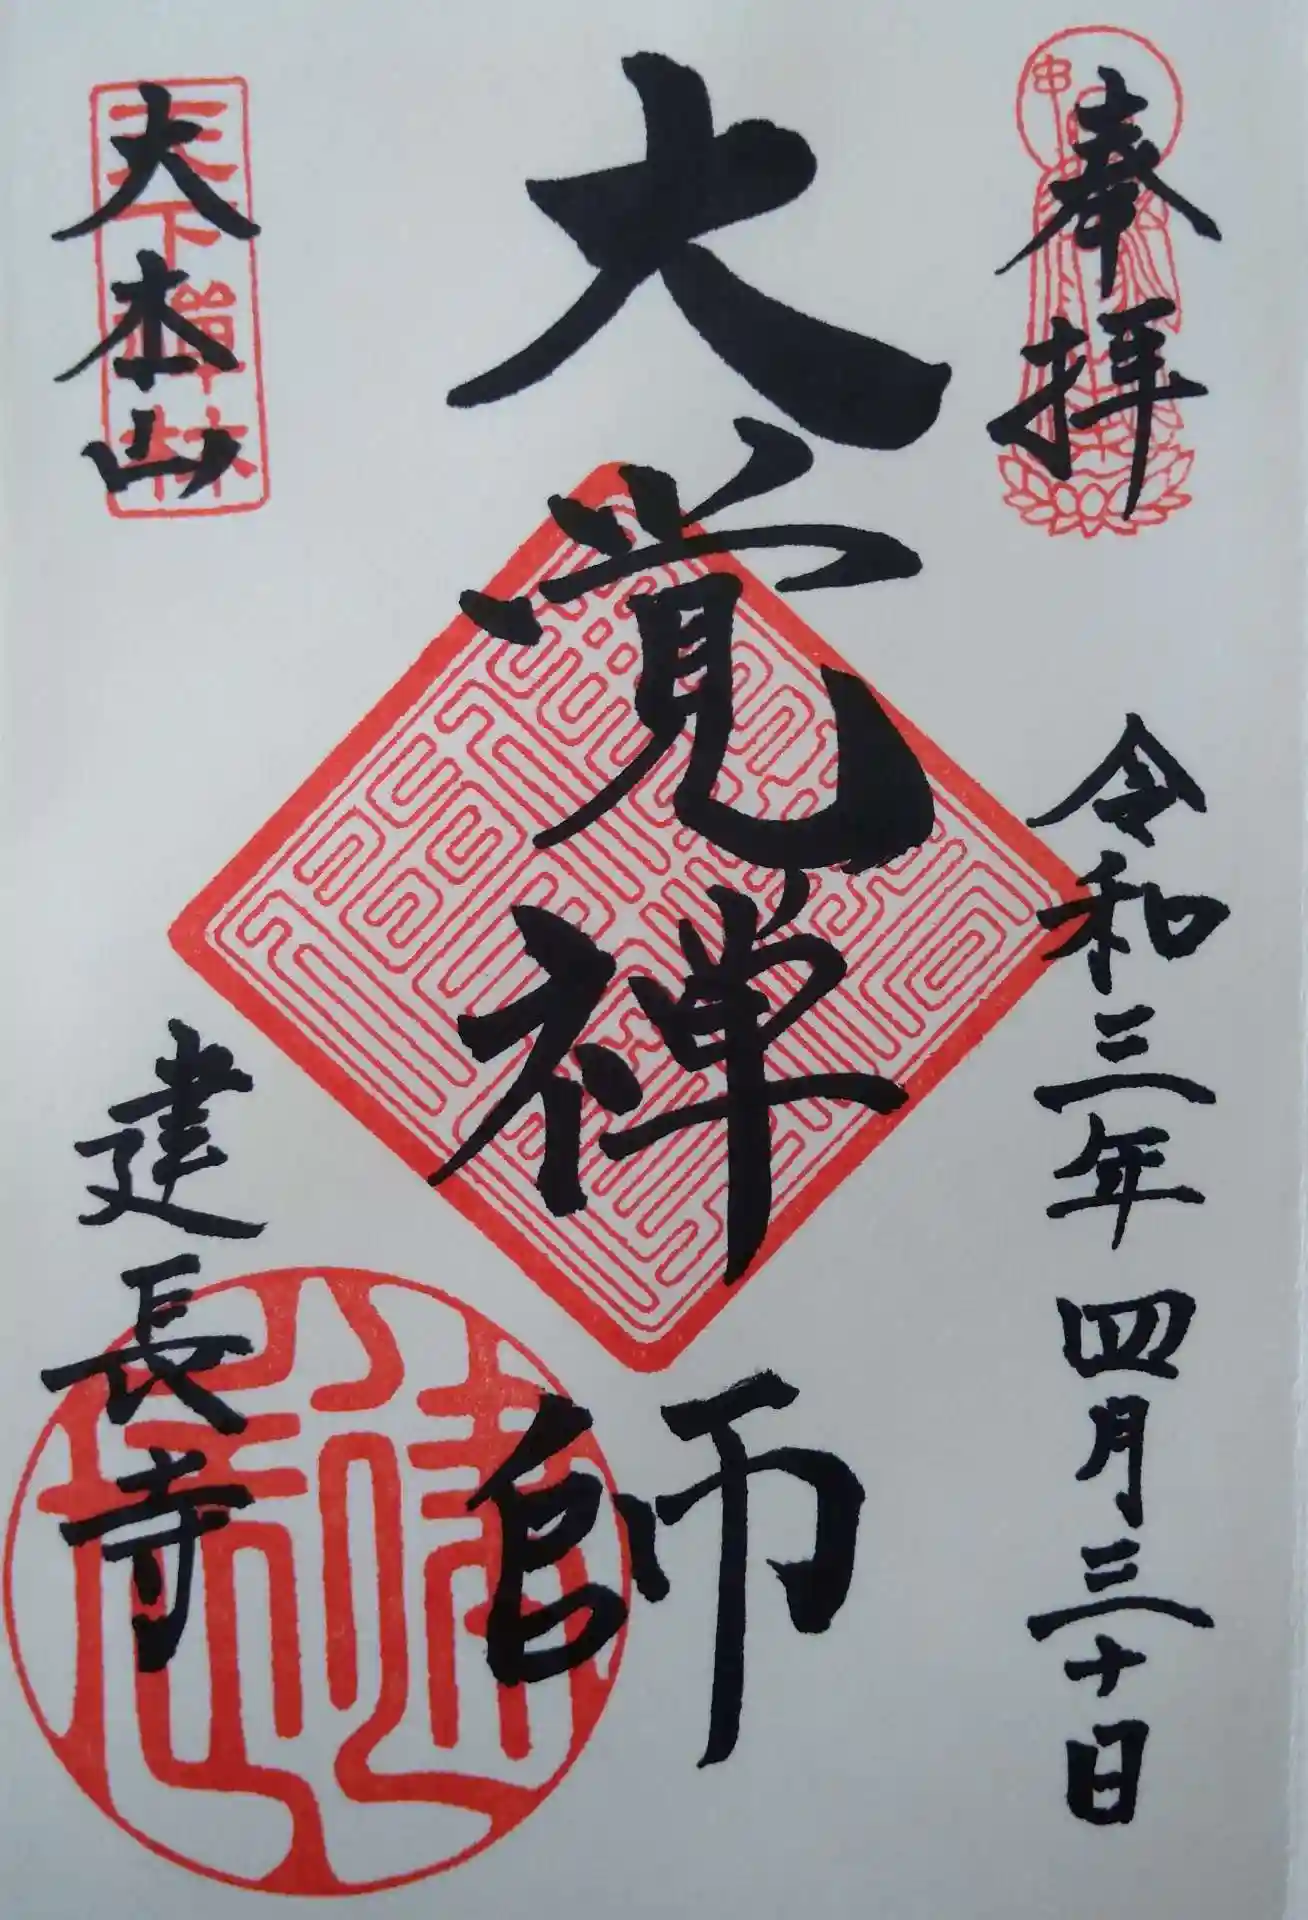 奉拝
令和三年四月三十日
大覚禅師
大本山
天下禅林
建長寺